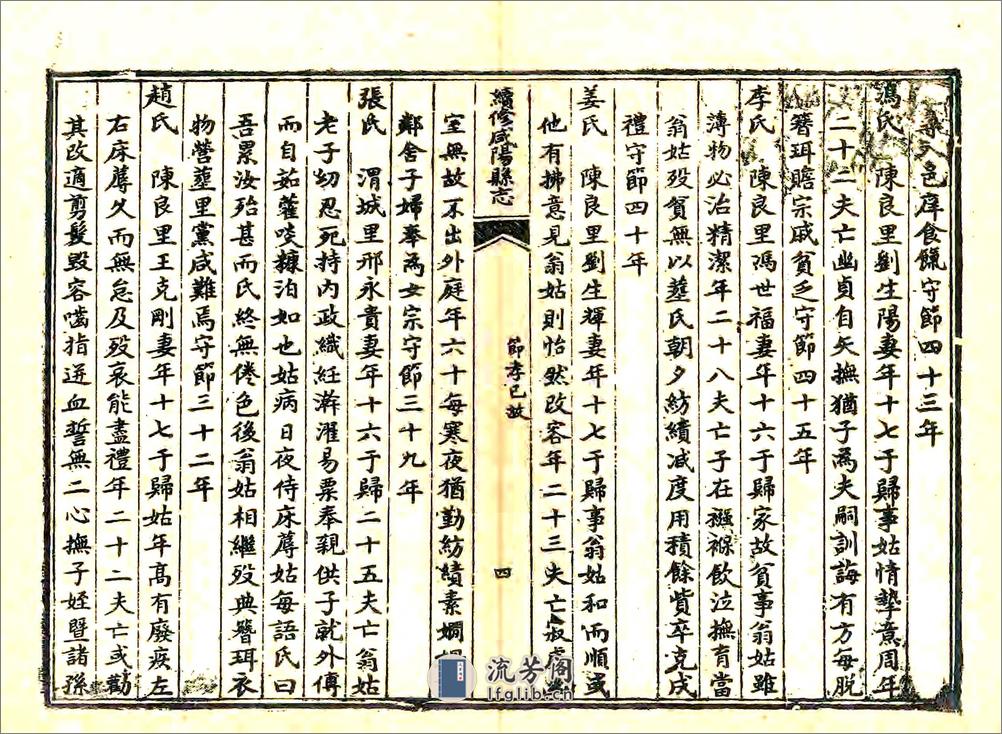 入邑庠食餼守節四十三年
馮氏 陳良里劉生陽妻年十七于歸事姑情摯意周年
二十二夫亡幽貞自矢撫猶子為夫嗣訓誨有方每脫
簪珥贍宗戚貧乏守節四十五年
李氏 陳良里馮世福妻年十六于歸家故貧事翁姑雖
薄物必治精潔年二十八夫亡子在襁褓飲泣撫育當
翁姑歿貧無以塟氏朝夕紡績減度用積餘貲卒克戌
禮守節四十年
姜氏 陳良里劉生輝妻年十七于歸事翁姑和而順或
他有拂意見翁姑則怡然改容年二十三夫亡寂處
續修咸陽縣志
節孝已故
四
室無故不出外庭年六十每寒夜猶勤紡績素嫺
鄰舍子婦奉為女宗守節三十九年
張氏 渭城里邢永貴妻年十六于歸二十五夫亡翁姑
老子幼忍死持內政織紝澣濯易粟奉親供子就外傅
而自茹藿啖糠泊如也姑病日夜侍床蓐姑每語氏曰
吾累汝殆甚而氏終無倦色後翁姑相繼歿典簪珥衣
物營塟里黨咸難焉守節三十二年
趙氏 陳良里王克剛妻年十七于歸姑年高有廢疾左
右床蓐久而無怠及歿哀能盡禮年二十二夫亡或勸
其改適剪髮毀容嚙指迸血誓無二心撫子姪暨諸孫
流芳阁
lfglib.cn